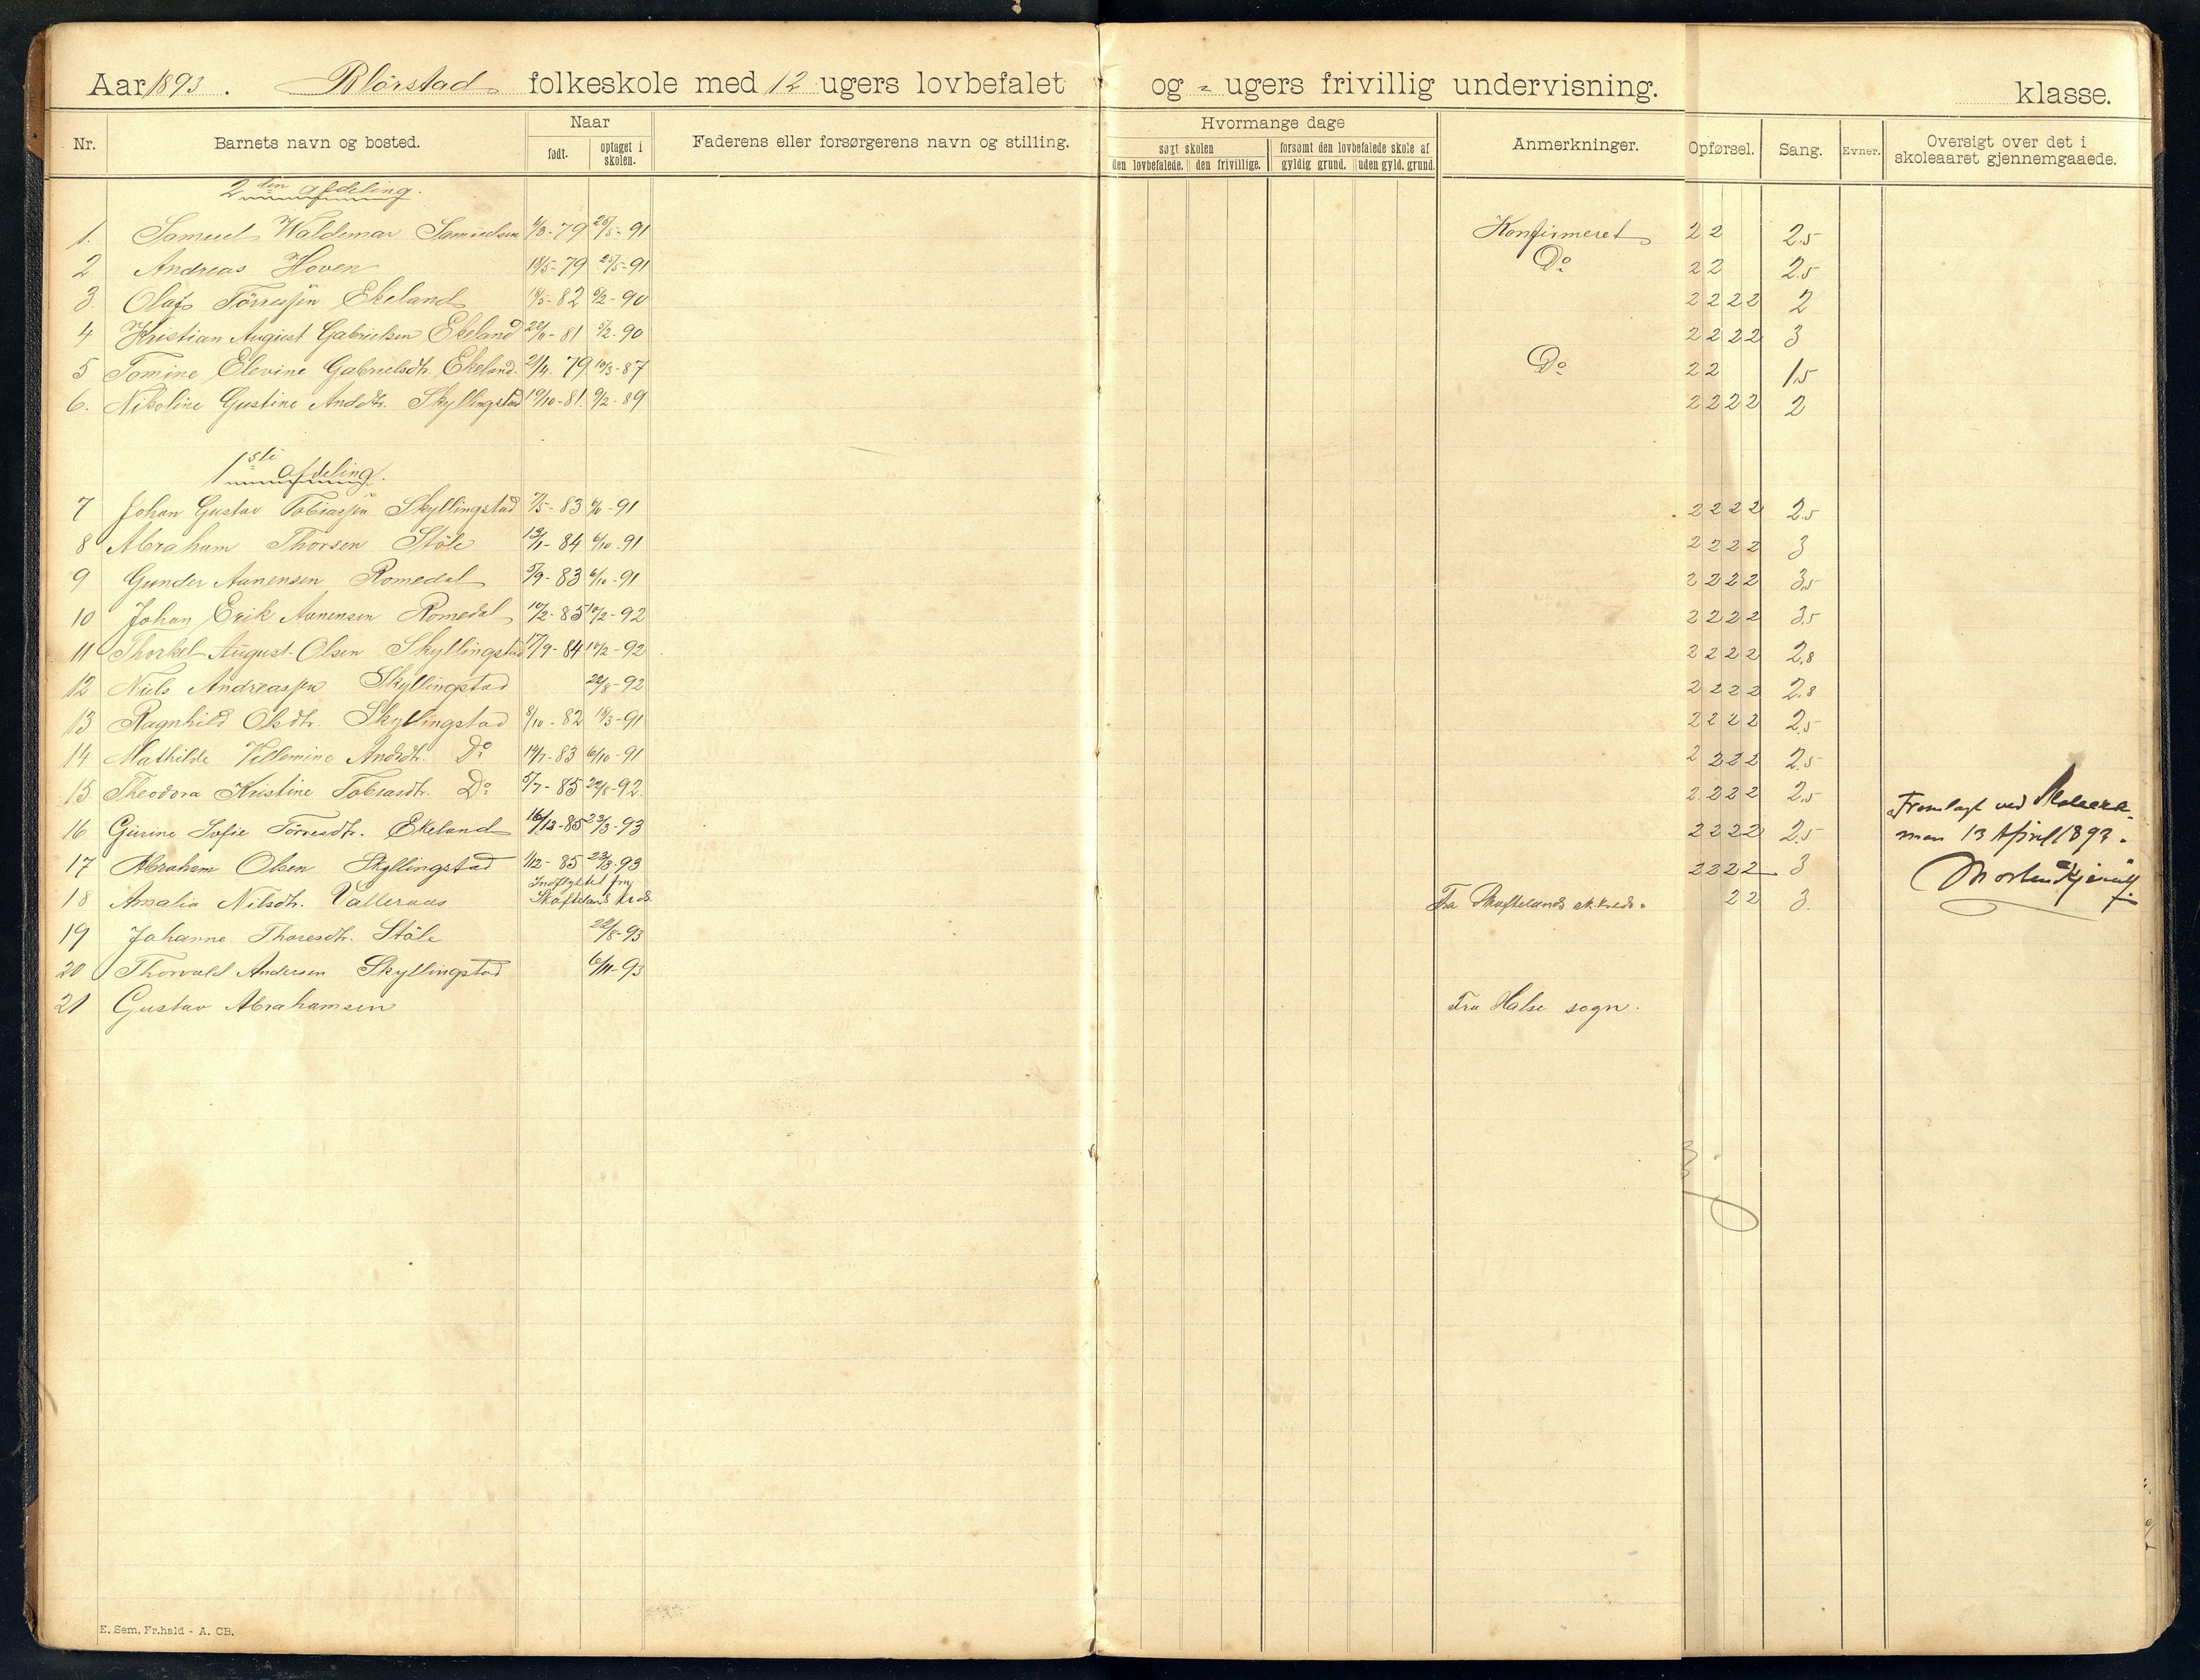 Aar 1893. Blörstad folkeskole med 12 ugers lovbefalet og - ugers frivillig undervisning. klasse.
Nr. Barnets navn og bosted. Naar født. optaget i skolen. Faderens eller forsørgerens navn og stilling. Hvormange dage søgt skolen den lovbefalede. den frivillige. forsømt den lovbefalede skole af gyldig grund. uden gyld. grund. Anmerkninger. Opførsel. Sang. Evner. Oversigt over det i skoleaaret gjennemgaaede.
2den afdeling.
1. Samuel Waldemar Samuelsen 4/3-79 25/5-91 Konfirmeret 2 2 2.5
2 Andreas Hoven 18/5-79 25/5-91 Do 2 2 2.5
3. Olaf Törresen Ekeland 18/5-82 5/2-90 2 2 2 2 2
4 Kristian August Gabrielsen Ekeland 22/11-81 5/2-90 2 2 2 2 3
5 Tomine Elevine Gabrielsdtr. Ekeland. 21/4-79 14/3-87 Do 2 2 1.5
6. Nikoline Gustine Anddtr. Skyllingstad 19/10-81 9/2-89 2 2 2 2 2
1ste afdeling.
7 Johan Gustav Tobiassen Skyllingstad 7/5-83 6/10-91 2 2 2 2 2.5
8 Abraham Thorsen Stöle 13/1-84 6/10-91 2 2 2 2 3
9 Gunder Aanensen Romedal 5/9-83 6/10-91 2 2 2 2 3,5
10 Johan Erik Aanensen Romedal 10/2-85 10/2-92 2 2 2 2 3,5
11 Thorkel August Olsen Skyllingstad 17/9-84 10/2-92 2 2 2 2 2,8
12 Niels Andreassen Skyllingstad 22/8-92 2 2 2 2 2,8
13 Ragnhild Olsdtr. Skyllingstad 8/10-82 18/3-91 2 2 2 2 2,5
14 Mathilde Villemine Anddtr. Do 14/7-83 6/10-91 2 2 2 2 2.5
15. Theodora Kristine Tobiasdtr. Do 5/7-85 22/8-92. 2 2 2 2 2,5
16 Gurine Sofie Törresdtr. Ekeland 16/12-85 23/3-93 2 2 2 2 2.5
17 Abraham Olsen Skyllingstad 1/12-85 23/3-93 2 2 2 2 3
18 Amalia Nilsdtr. Valleraas Indflyttet fra Skofteland kreds Fra Skoftelands sk.kreds. 2 2 3.
19 Johanne Thoresdtr. Stöle 22/8-93
20 Thorvald Andersen Skyllingstad 6/11-93
21 Gustav Abrahamsen Fra Halse sogn.
Fremlagt ved Skoleexa-
men 13 April 1893.
Morten
E. Sem, Fr.hald - A. CB.